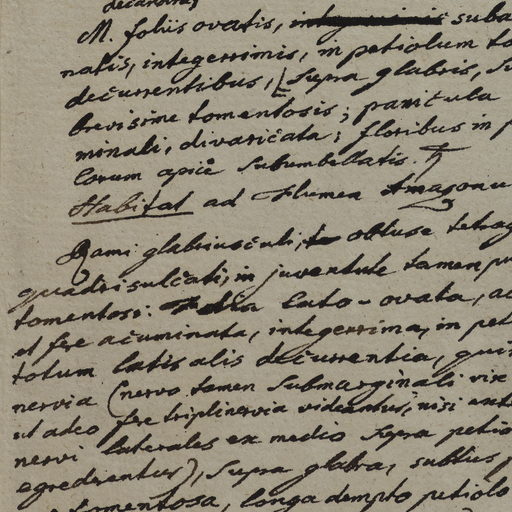 M. foliis ovatis, suba
natis, integerrimis, in petiolum to
decurrentibus, supra glabris, su
brevissime tomentosis; panicula
minali, divaricata; floribus in p
lorum apice subumbellatis.
Habitat ad Flumen Amazonu
Rami glabriusculi, obtuse tetrag
quadrisulcati, in juventute tamen pu
tomentosi. lato-ovata, ac
et fere acuminata, integerrima, in pet
totum latis alis decurrentia, quin
nervia (nervo tamen submarginali vix
ut adeo fere triplinervia videantur, nisi ext
nervi laterales ex medio supra petio
egrediantur), supra glabra, subtus p
tomentosa, longa dempto petiolo